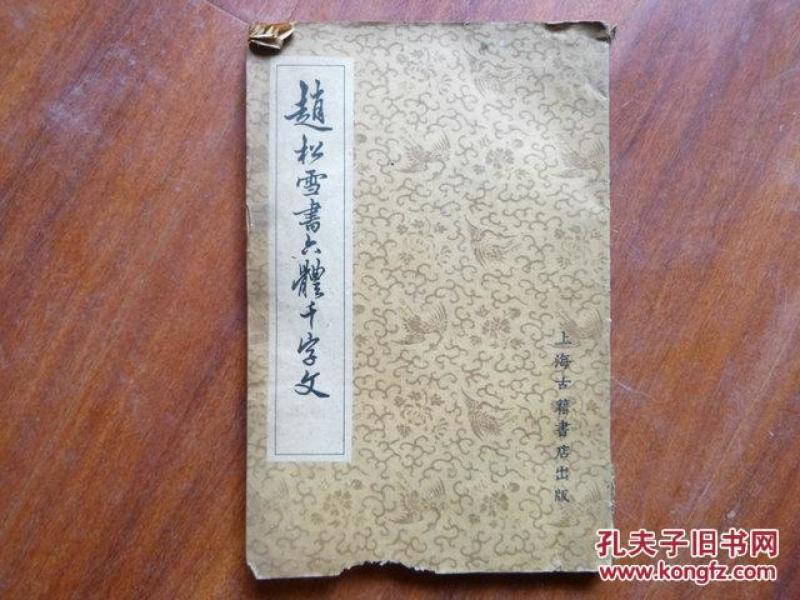 趙松雪書六體千字文
上海古籍書店出版
孔夫子旧书网
www.kongfz.com